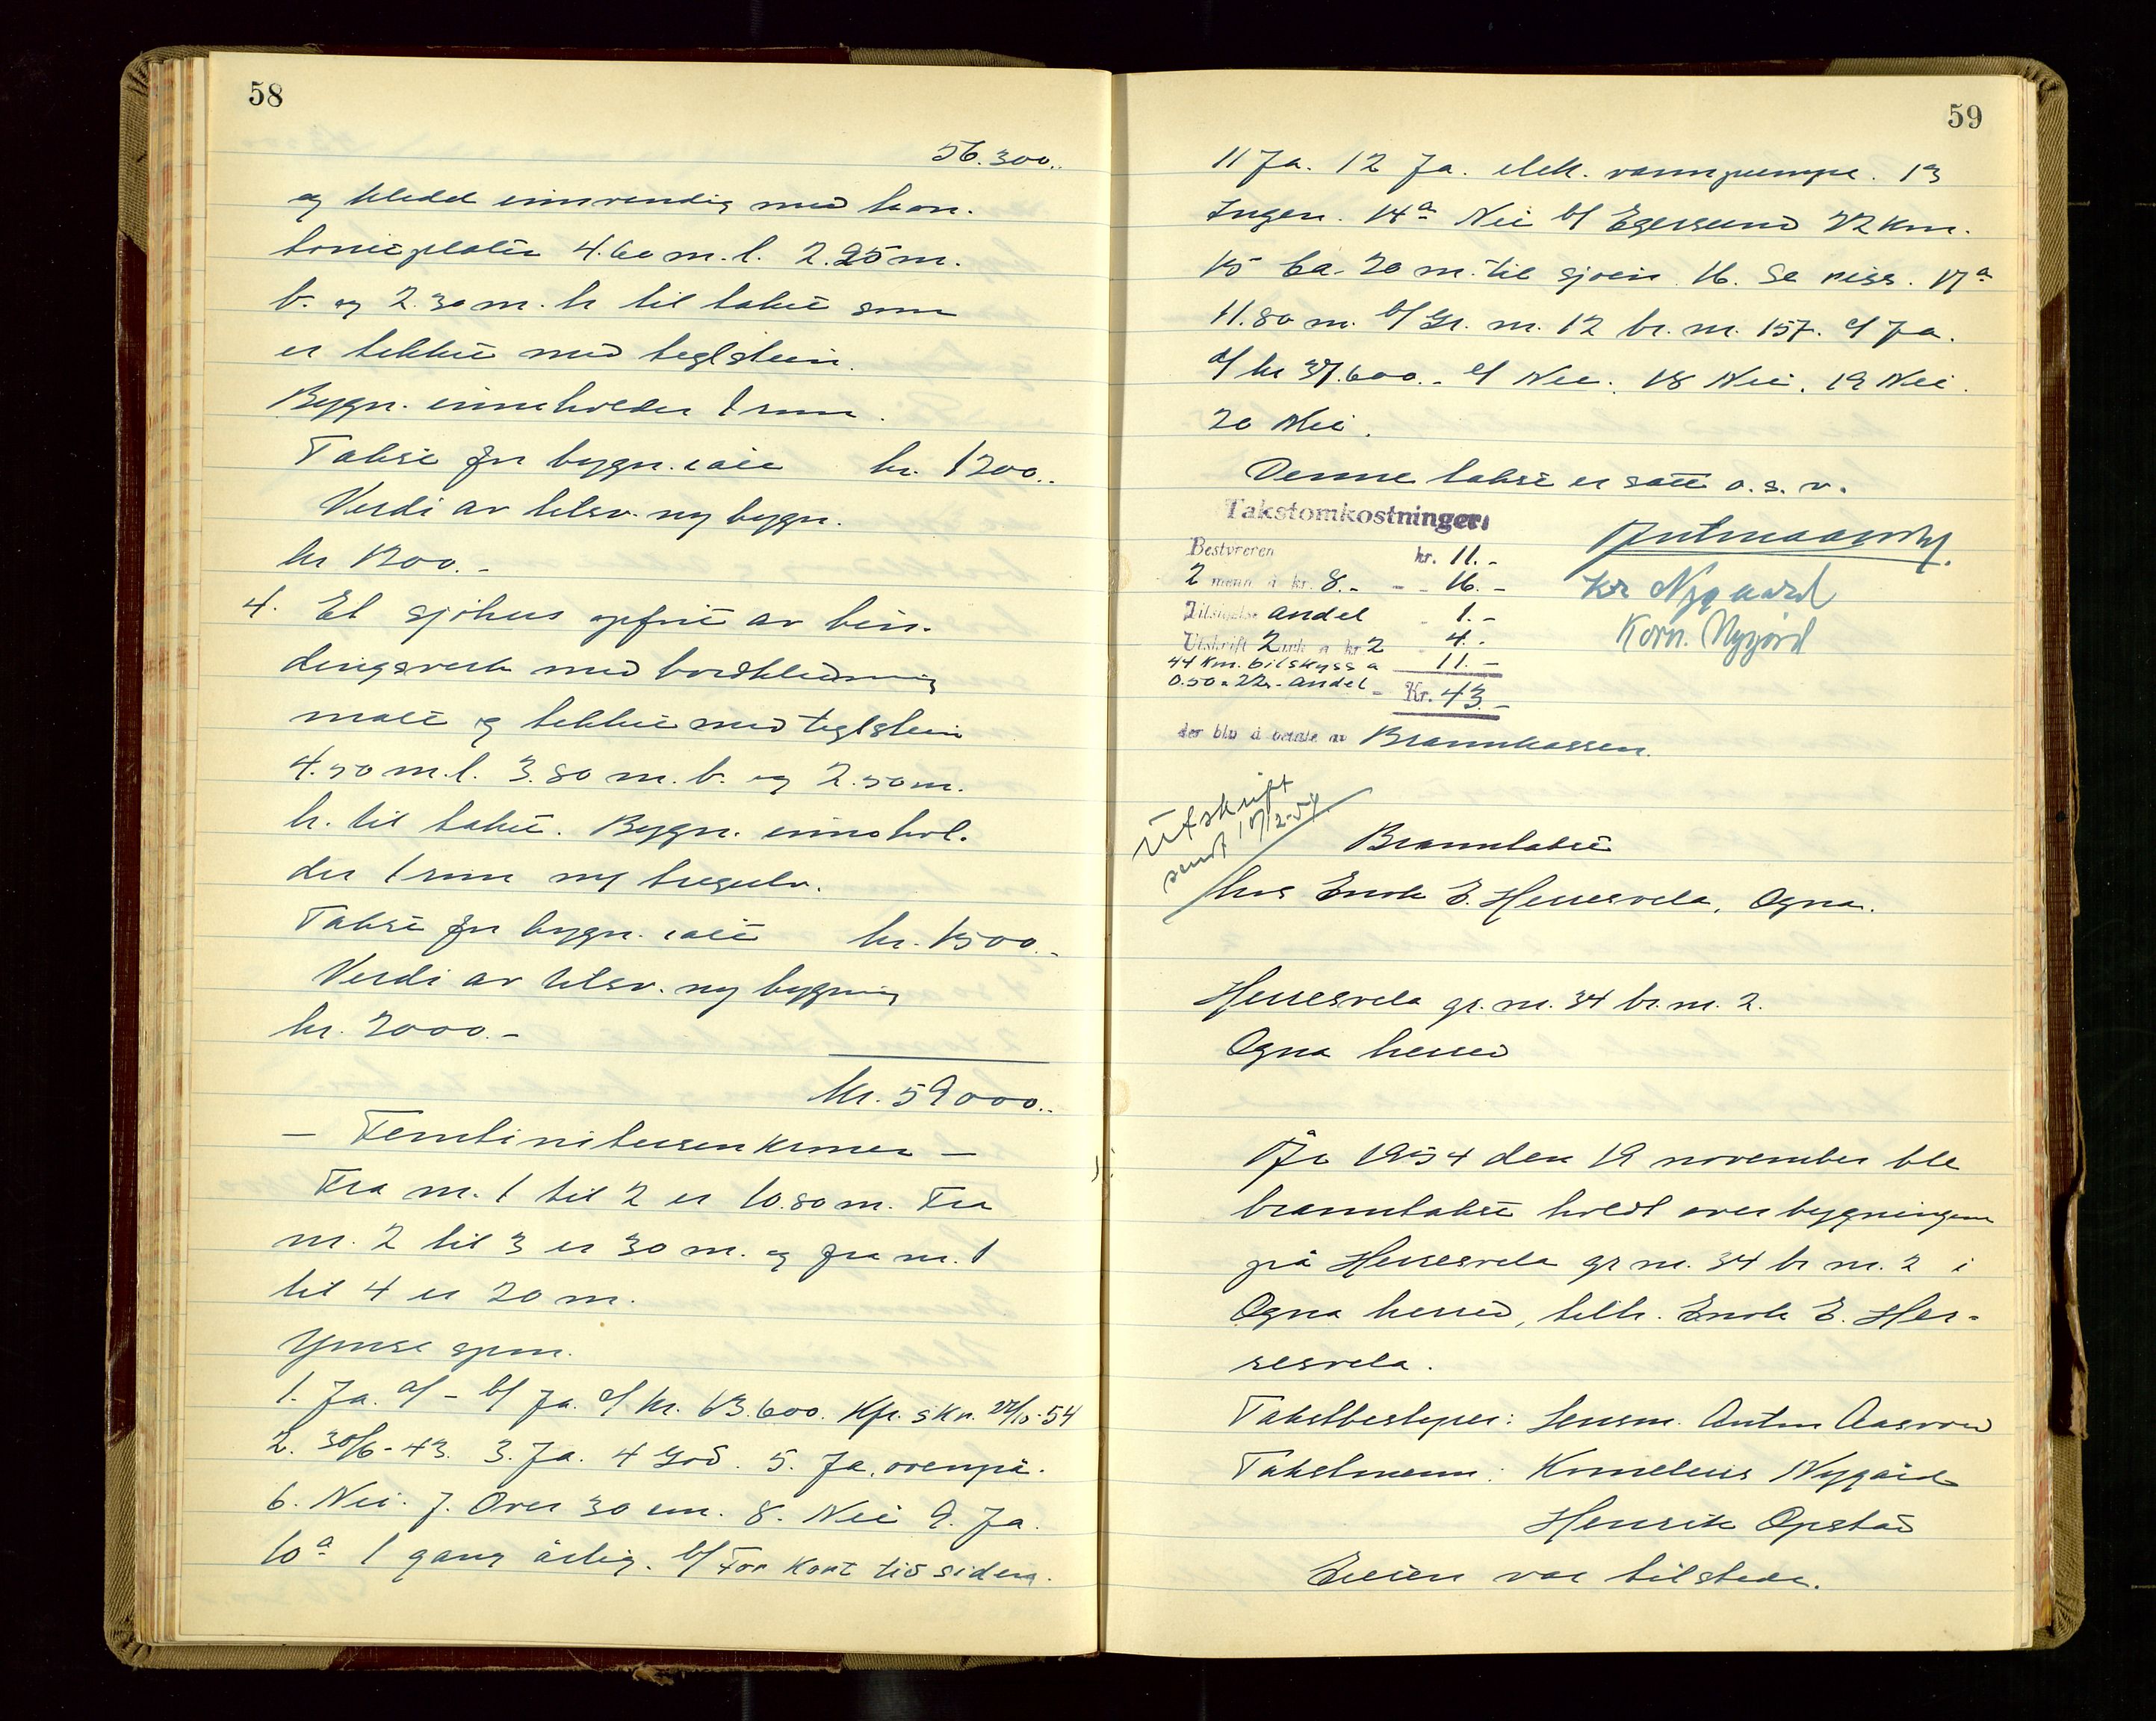 58
56.300..
og kledd innvendig med kar-
tonitplater 4.60 m. l. 2.25 m.
b. og 2.30 m. h til taket som
er tekket med teglstein.
Bygn. inneholder 1 rum.
Takst for bygn. satt kr. 1200..
Verdi av tilsv. ny bygn.
kr 1300.-
4. Et sjøhus opført av bin-
dingsverk med bordkledning
malt og tekket med teglstein
4.50 m.l. 3.80 m. b. og 2.50 m.
h. til taket. Bygn. innehol-
der 1 rum m/ tregulv.
Takst for bygn. satt kr. 1500.-
Verdi av tilsv. ny bygning
kr. 2000.-
Kr. 59000..
- Femtinitusenkroner -
Fra nr. 1 til 2 er 10.80 m. Fra
nr. 2 til 3 er 30 m. og fra nr. 1
til 4 er 20 m.
Ymse spm.
1. Ja. a/ - b/ Ja. c/ kr. 63.600. Kfr. skr. 54
2. 30/6-43. 3. Ja. 4 God. 5. Ja, ovenpå.
6. Nei. 7. Over 30 cm. 8. Nei 9. Ja.
10 a 1 gang årlig. b/ For kort tid siden.
59
11 Ja. 12 Ja. elek. vannpumpe. 13
Ingen. 14 a Nei b/ Egersund 22 km.
15 Ca. 20 m. til sjøen. 16. Se riss. 17 a
11.80 m. b/ Gr. nr. 12 br. nr. 157. c/ Ja.
d/ kr 37.600.- e/ Nei. 18 Nei. 19 Nei.
20 Nei.
Denne takst er satt o. s. v.
Takstomkostninger:
Bestyreren kr. 11.-
2 menn à kr. 8.- - - 16.-
Tilsigelse andel - 1.-
Utskrift 2 ark à kr. 2 - 4.-
44 km. bilskyss a 11.-
0.50 = 22.- andel - Kr. 43.-
der blir å betale av Brannkassen.
Kr Nygaard
Korn. Nygård
Utskrift
sendt
Branntakst
hos Enok E. Herresvela, Ogna.
Herresvela gr. nr. 34 br. nr. 2.
Ogna herred
År 1954 den 19 november ble
branntakst holdt over bygningene
på Herresvela gr nr. 34 br nr. 2 i
Ogna herred, tilh. Enok E. Her-
resvela.
Takstbestyrer: Lensm. Anton Aasvold
Takstmenn: Kornelius Nygård
Henrik Opstad
Eieren var tilstede.